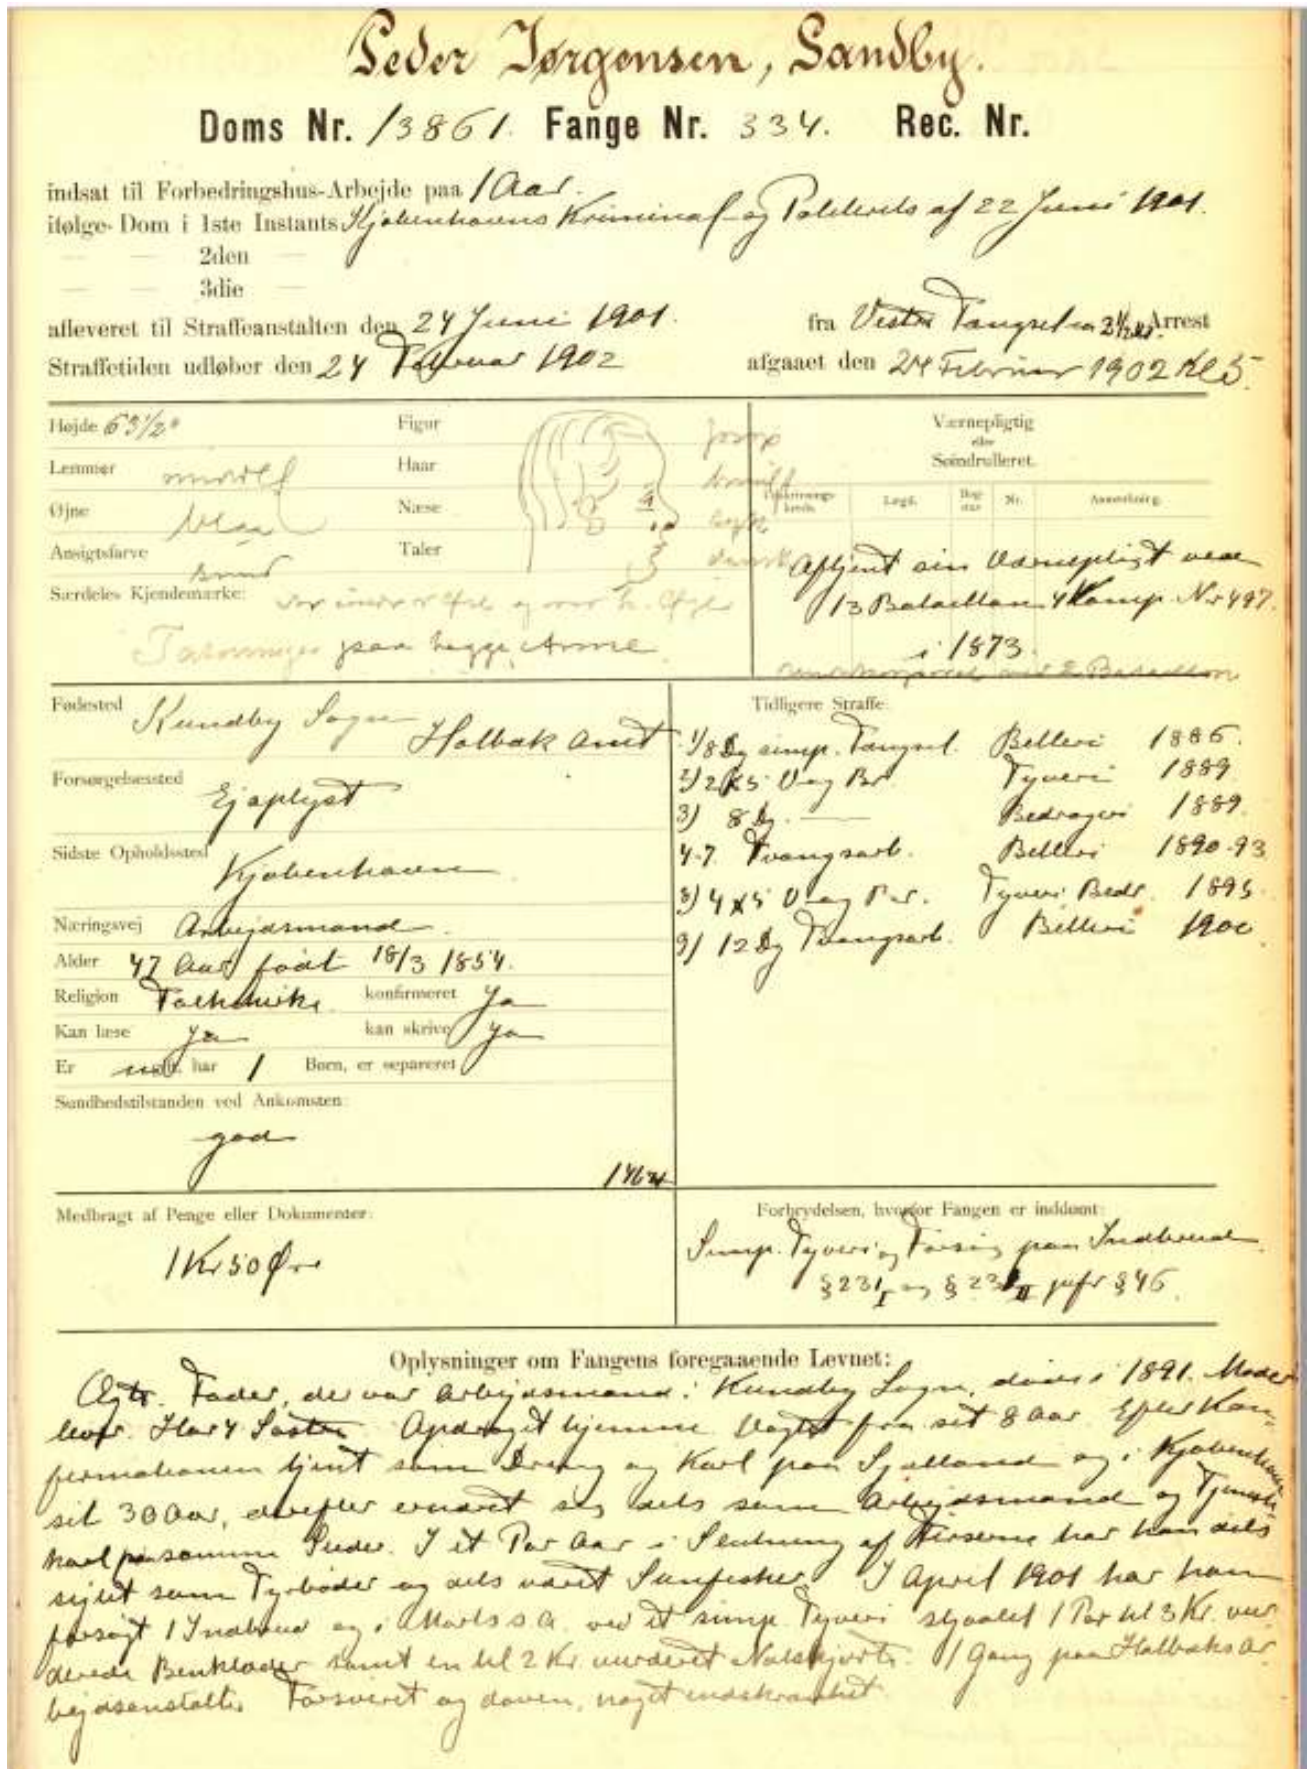 Peder Jørgensen, Sandby.
Doms Nr. 13861. Fange Nr. 334. Rec. Nr.
indsat til Forbedringshus-Arbejde paa 1 Aar.
ifølge Dom i 1ste Instants Kjøbenhavns Kriminal og Politirets af 22 Juni 1901.
— — 2den —
— — 3die —
afleveret til Straffeanstalten den 24 Juni 1901. fra Vestre Fængsel Arrest
Straffetiden udløber den 24 Februar 1902 afgaaet den 24 Februar 1902 Kl 5.
Højde 63 1/2" Figur Værnepligtig
eller
Søindrulleret.
Lemmer middel Haar
Øjne blaa Næse Legd. Nr. Anmerkning.
Ansigtsfarve sund Taler dansk
Aftjent sin Værnepligt ved
13 Bataillon 4 Komp. Nr 497.
i 1873.
Særdeles Kjendemærke:
Tatoveringer paa begge Arme
Fødested Kundby Sogn Holbæk Amt
Forsørgelsessted Ej oplyst
Sidste Opholdssted Kjøbenhavn
Næringsvej Arbejdsmand.
Alder 47 Aar født 18/3 1854.
Religion Folkekirke konfirmeret Ja
Kan læse Ja kan skrive Ja
Er har 1 Børn, er separeret
Sundhedstilstanden ved Ankomsten:
god
Tidligere Straffe:
1/ 8 Dg simp. Fængsel. Betleri 1886.
2/ 2x5 V og Br Tyveri 1889
3) 8 Dg. — Bedrageri 1889.
4-7. Tvangsarb. Betleri 1890-93
8) 4x5 V og Br. Tyveri Bedr. 1895.
9) 12 Dg Tvangsarb. Betleri 1900.
Medbragt af Penge eller Dokumenter:
1 Kr 50 Øre
Forbrydelsen, hvorfor Fangen er inddømt:
Simp. Tyveri og Forsøg paa Indbrud
§ 231 I og § 231 II jvfr § 46.
Oplysninger om Fangens foregaaende Levnet:
Ægte. Fader, der var Arbejdsmand i Kundby Sogn, døde i 1891. Moder
lever. Har 4 Søstre. Opdraget hjemme. Vogtet fra sit 8 Aar. Efter Kon-
firmationen tjent som Dreng og Karl paa Sjælland og i Kjøbenhavn
sit 30 Aar, derefter ernæret sig dels som Arbejdsmand og Tjeneste-
karl paa samme Steder. I et Par Aar i Slutning af Firserne har han dels
sejlet som Fyrbøder og dels været I April 1901 har han
forsøgt 1 Indbrud og i Marts s. A. ved et simp. Tyveri stjaalet 1 Par til 3 Kr. vur-
derede Benklæder samt en til 2 Kr. vurderet Natskjorte. 1 Gang paa Holbæks Ar-
bejdsanstalt. Forsviret og doven, noget indskrænket.